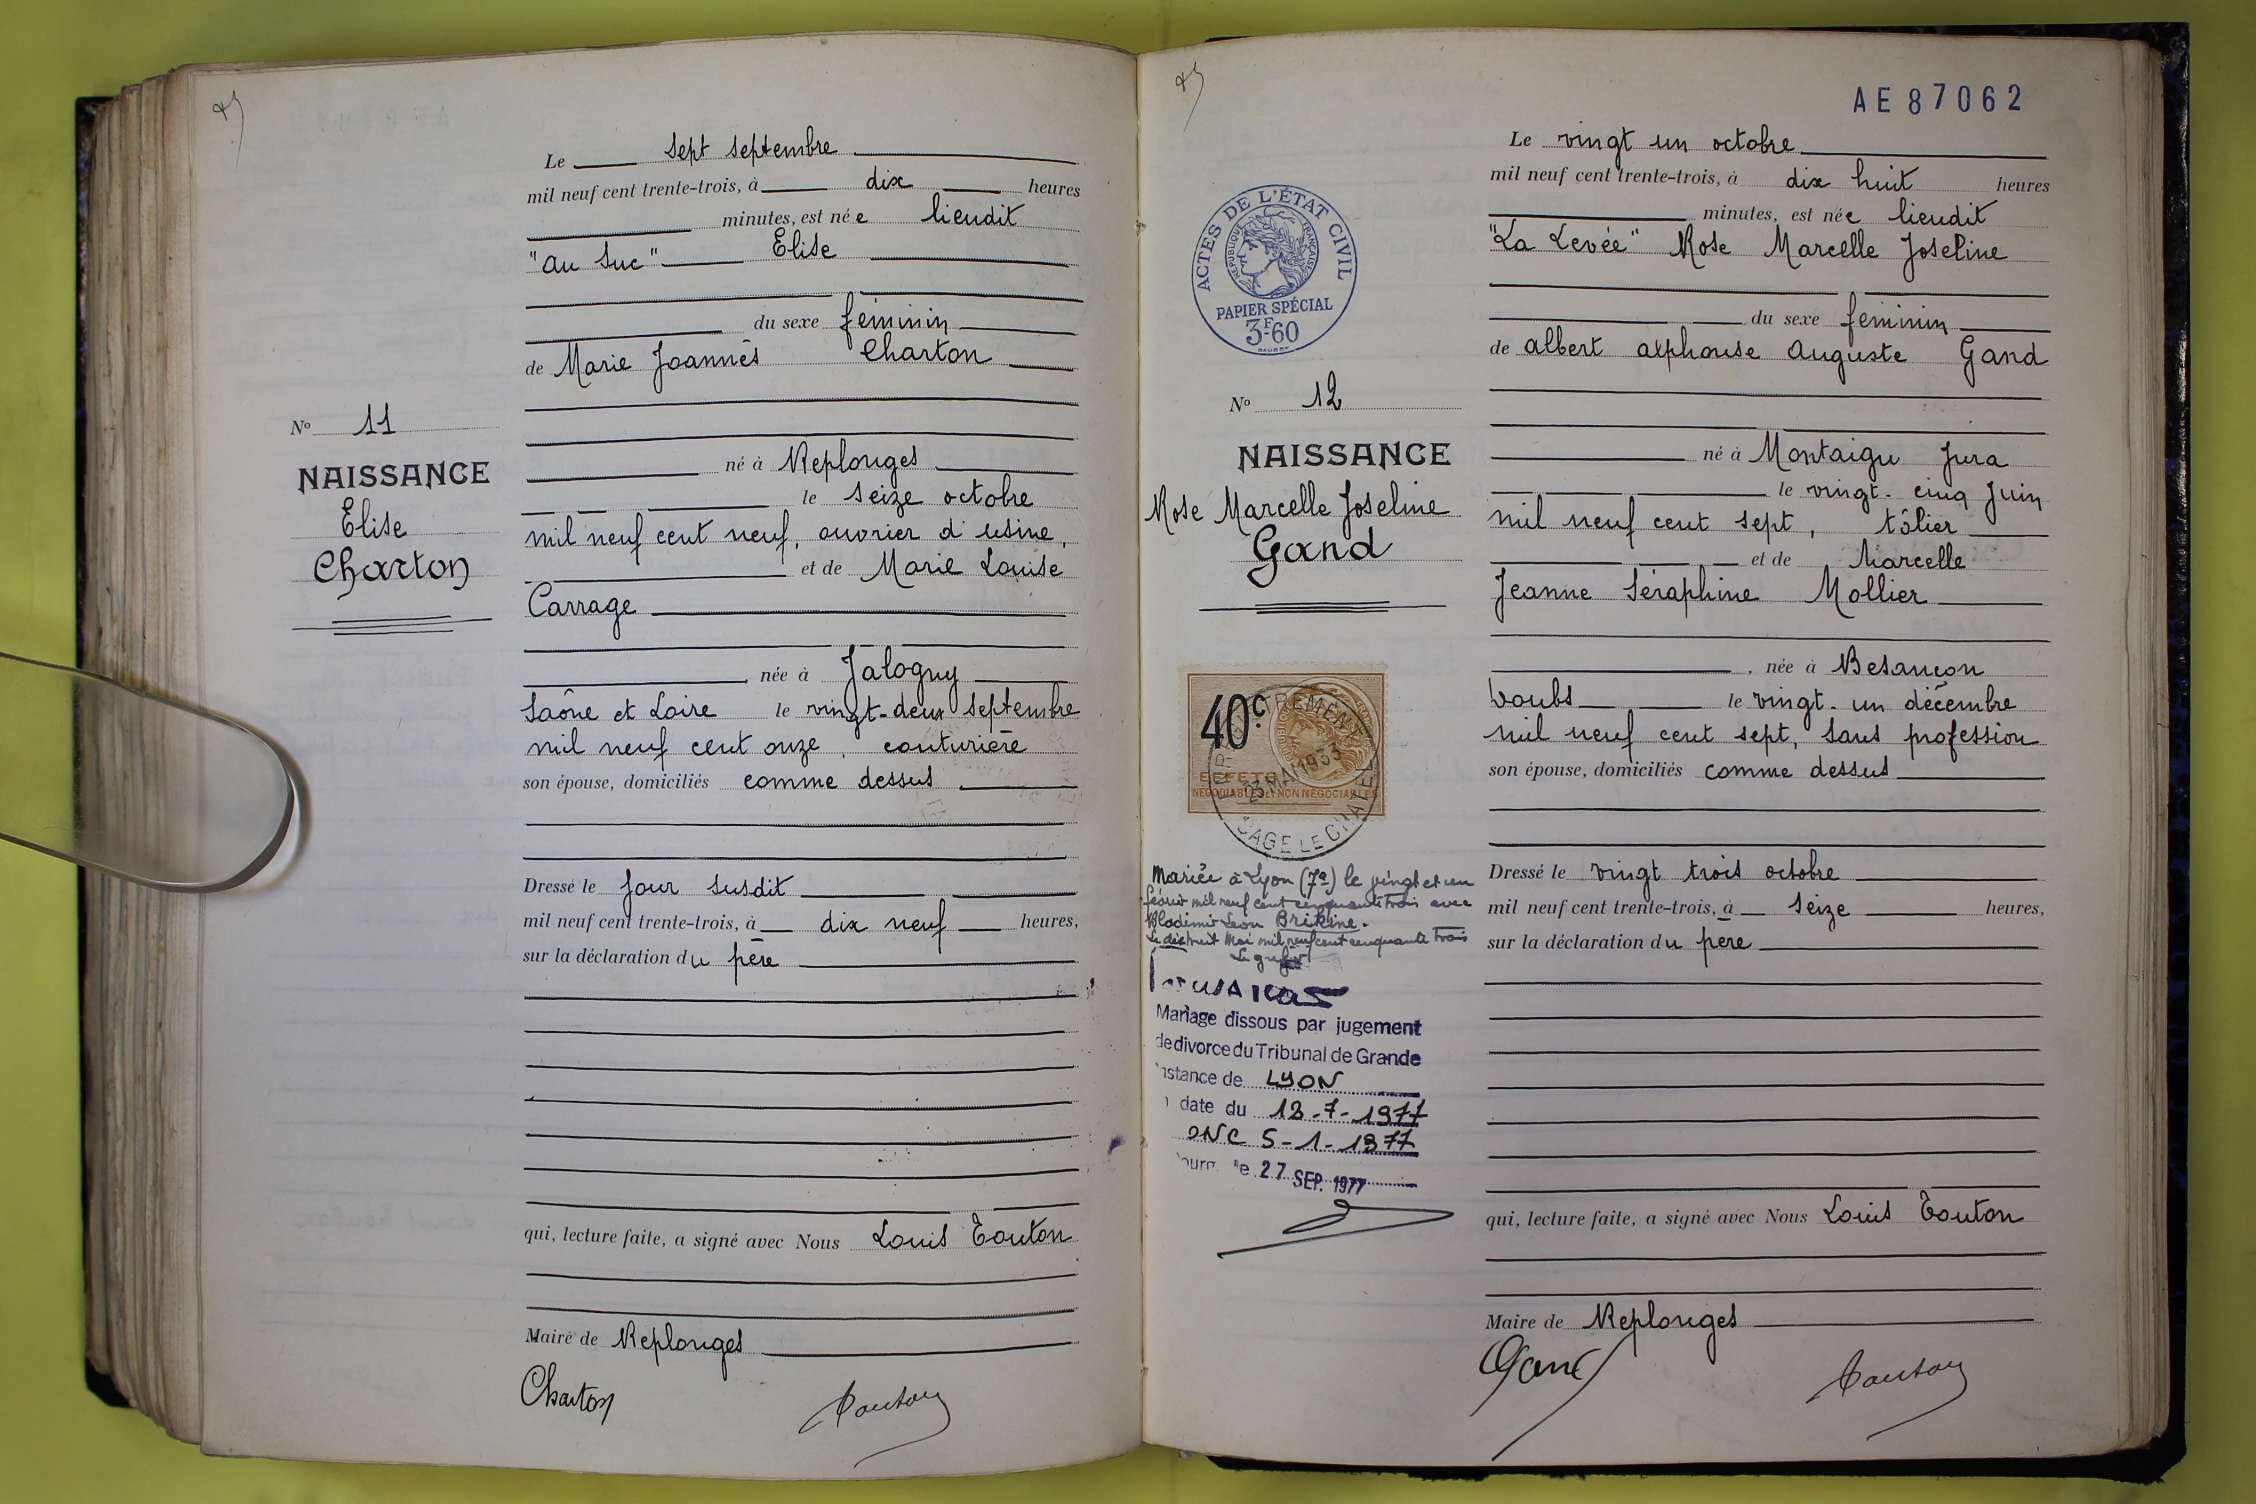 Le sept septembre
mil neuf cent trente-trois, à dix heures
minutes, est née lieudit
"au Suc" Elise
du sexe féminin
de Marie Joannès Charton
né à Replonges
le seize octobre
mil neuf cent neuf, ouvrier d'usine,
et de Marie Louise
Carrage
née à Jalogny
Saône et Loire le vingt-deux septembre
mil neuf cent onze, couturière
son épouse, domiciliés comme dessus
Dressé le jour susdit
mil neuf cent trente-trois, à dix neuf heures,
sur la déclaration du père
qui, lecture faite, a signé avec Nous Louis Touton
Maire de Replonges
Charton Touton
No 11
NAISSANCE
Elise
Charton
AE87062
ACTES DE L'ÉTAT CIVIL
RÉPUBLIQUE FRANÇAISE
PAPIER SPÉCIAL
3F-60
No 12
NAISSANCE
Rose Marcelle Joseline
Gand
40c
EFFETS
NÉGOCIABLES & NON NÉGOCIABLES
23 MAI 1933
Mariée à Lyon (7e) le vingt et un
février mil neuf cent cinquante trois avec
Wladimir Leon Brikine.
Le dixhuit Mai mil neuf cent cinquante trois
Le greffier
Mariage dissous par jugement
de divorce du Tribunal de Grande
instance de LYON
date du 18-7-1977
ONC 5-1-1977
Bourg le 27 SEP. 1977
Le vingt un octobre
mil neuf cent trente-trois, à dix huit heures
minutes, est née lieudit
"La Levée" Rose Marcelle Joseline
du sexe féminin
de Albert Alphonse Auguste Gand
né à Montaigu Jura
le vingt-cinq Juin
mil neuf cent sept, tôlier
et de Marcelle
Jeanne Séraphine Mollier
née à Besançon
Doubs le vingt-un décembre
mil neuf cent sept, sans profession
son épouse, domiciliés comme dessus
Dressé le vingt trois octobre
mil neuf cent trente-trois, à seize heures,
sur la déclaration du père
qui, lecture faite, a signé avec Nous Louis Touton
Maire de Replonges
Gand Touton